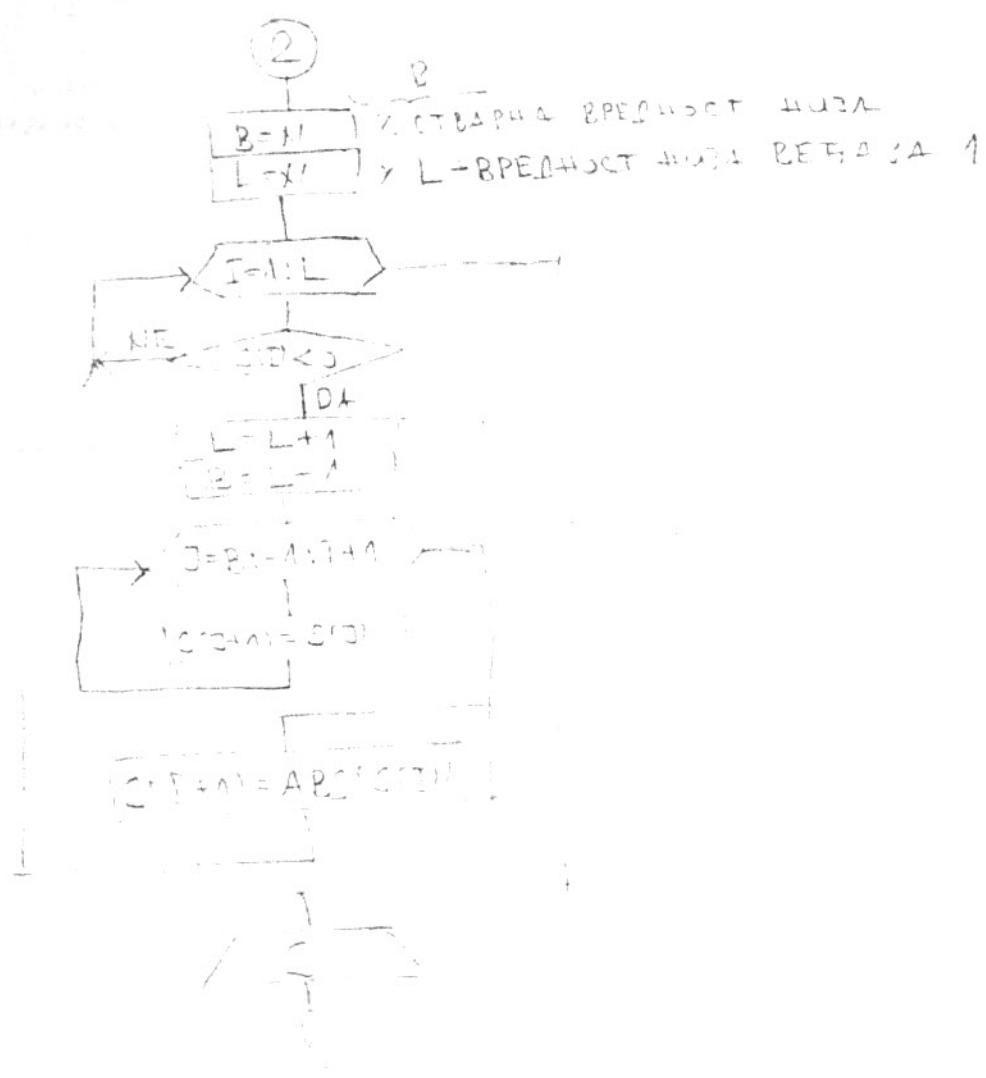 2
B
B=N % СТВАРНА ВРЕДНОСТ НИЗА
L = % L-ВРЕДНОСТ НИЗА ВЕЋА ЗА 1
I=1:L
NE
DA
L=L+1
B=L-1
J=B:-1:I+1
C(J+1)=C(J)
C(I+1)=ABS(C(I))